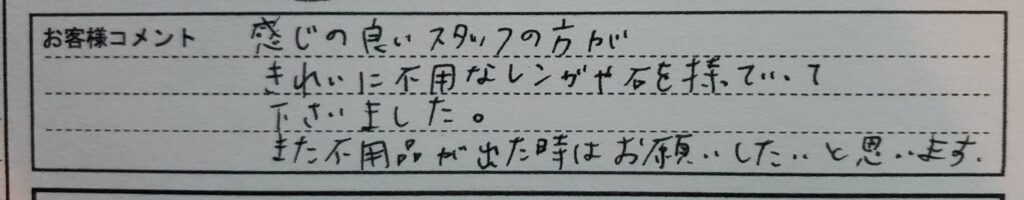 お客様コメント 感じの良いスタッフの方が
きれいに不用なレンガや石を持っていって
下さいました。
また不用品が出た時はお願いしたいと思います.